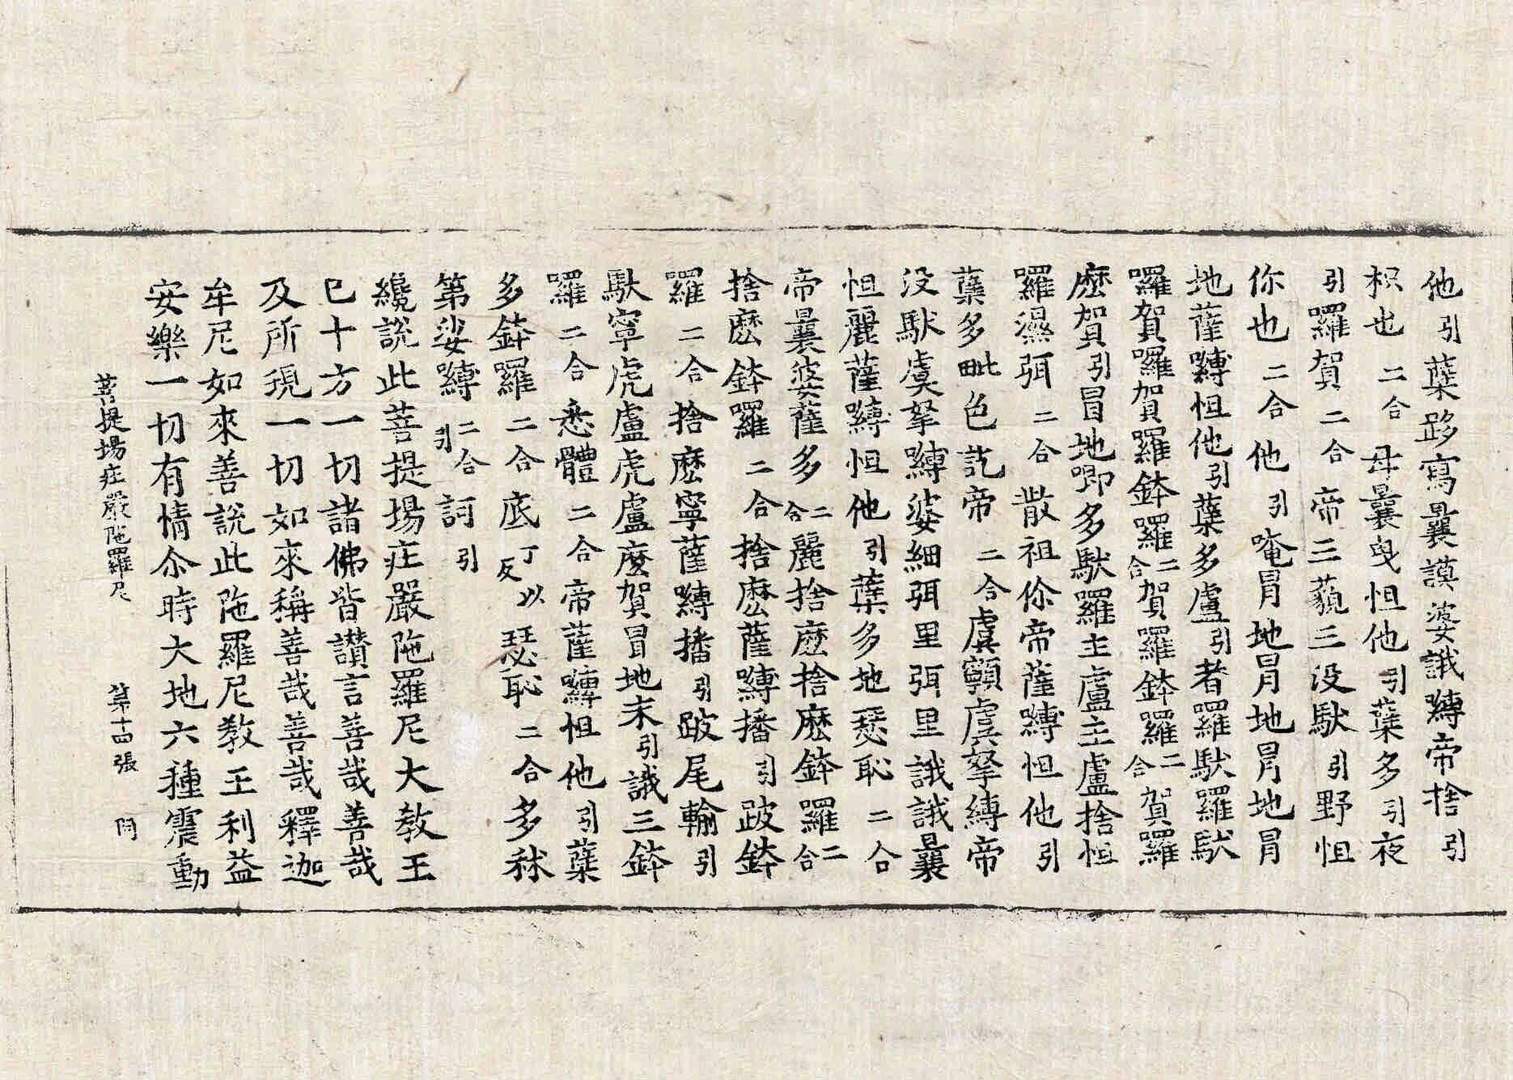 他引蘖跢寫曩謨婆誐嚩帝捨引
枳也二合母曩曳怛他引蘖多引夜
引羅賀二合帝三藐三没馱引野怛
你也二合他引唵冐地冐地冐地冐
地薩嚩怛他引蘖多盧引者羅馱羅馱
羅賀羅賀羅鉢羅二合賀羅鉢羅二合賀羅
麼賀引冒地唧多馱羅主盧主盧捨怛
羅濕弭二合散祖你帝薩嚩怛他引
蘖多毗色訖帝二合虞顐虞拏嚩帝
没馱虞拏嚩婆細弭里弭里誐誐曩
怛麗薩嚩怛他引蘖多地瑟恥二合
帝曩婆薩多二合麗捨麼捨麼鉢羅二合
捨麼鉢羅二合捨麽薩嚩播引跛鉢
羅二合捨麽寧薩嚩播引跛尾輸引
馱寧虎盧虎盧麼賀冒地末引誐三鉢
羅二合悉體二合帝薩嚩怛他引蘖
多鉢羅二合底丁以反瑟恥二合多秫
第娑嚩二合引訶引
纔說此菩提場莊嚴陁羅尼大教王
已十方一切諸佛皆讚言善哉善哉
及所現一切如來稱善哉善哉釋迦
牟尼如來善說此陁羅尼教王利益
安樂一切有情尒時大地六種震動
菩提場莊嚴陁羅尼 第十四張 同